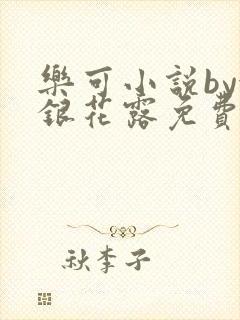 樂可小説by
銀花露免費
秋李子